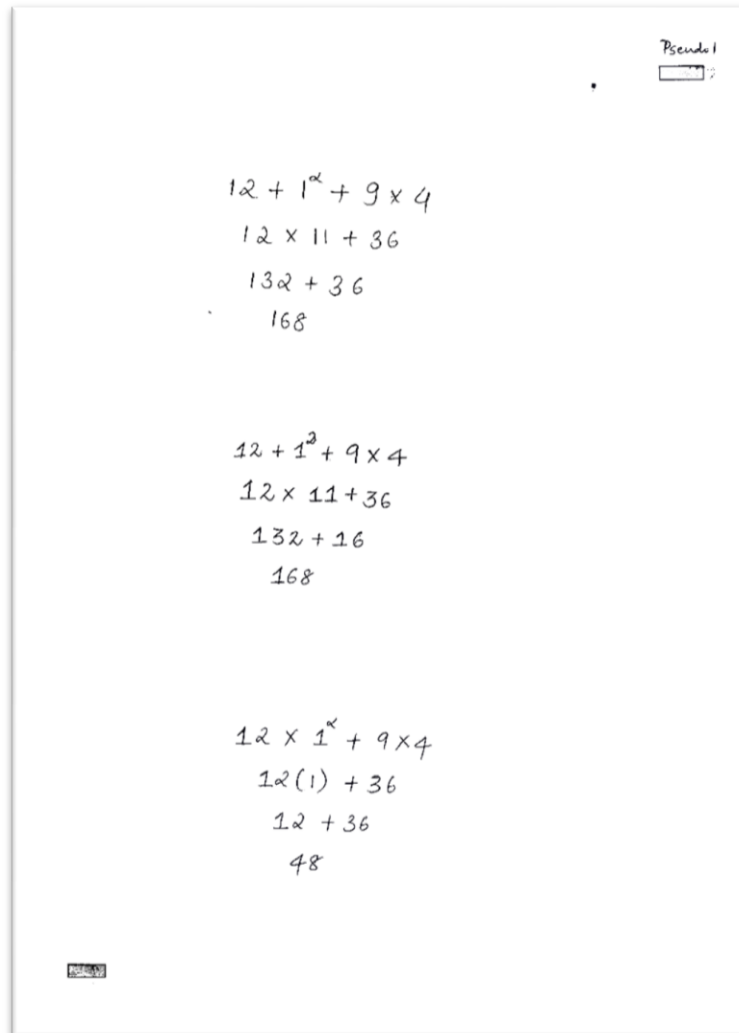 Pseudo1
12 + 1² + 9 × 4
12 × 11 + 36
132 + 36
168
12 + 1² + 9 × 4
12 × 11 + 36
132 + 16
168
12 × 1² + 9 × 4
12(1) + 36
12 + 36
48